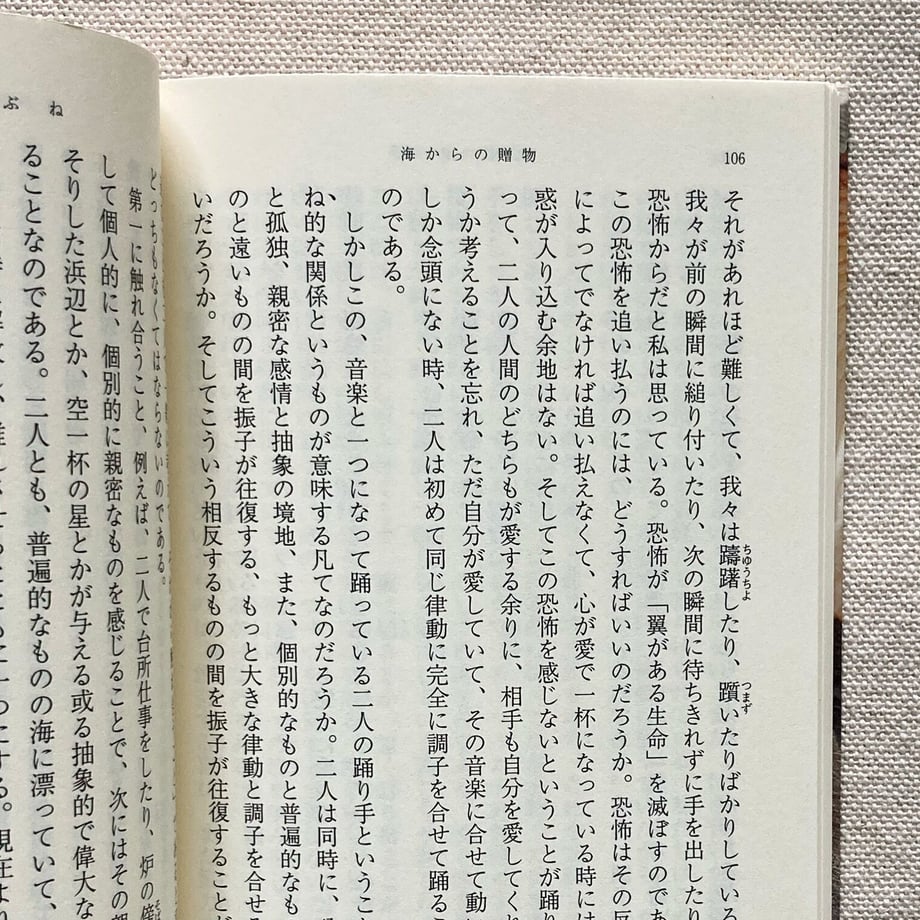 106
海からの贈物
それがあれほど難しくて、我々は躊躇したり、躓いたりばかりしている
ちゆうちよ
つまず
我々が前の瞬間に縋り付いたり、次の瞬間に待ちきれずに手を出したり
恐怖からだと私は思っている。恐怖が「翼がある生命」を滅ぼすのであ
この恐怖を追い払うのには、どうすればいいのだろうか。恐怖はその反
によってでなければ追い払えなくて、心が愛で一杯になっている時には
惑が入り込む余地はない。そしてこの恐怖を感じないということが踊り
って、二人の人間のどちらもが愛する余りに、相手も自分を愛してくれ
うか考えることを忘れ、ただ自分が愛していて、その音楽に合せて動い
しか念頭にない時、二人は初めて同じ律動に完全に調子を合せて踊るこ
のである。
しかしこの、音楽と一つになって踊っている二人の踊り手というこ
ね的な関係というものが意味する凡てなのだろうか。二人は同時に、
と孤独、親密な感情と抽象の境地、また、個別的なものと普遍的なも
のと遠いものの間を振子が往復する、もっと大きな律動と調子を合せる
いだろうか。そしてこういう相反するものの間を振子が往復することが
ぶね
どっちもなくてはならないのである。
第一に触れ合うこと、例えば、二人で台所仕事をしたり、炉の傍
して個人的に、個別的に親密なものを感じることで、次にはその親
そりした浜辺とか、空一杯の星とかが与える或る抽象的で偉大な
ることなのである。二人とも、普遍的なものの海に漂っていて、